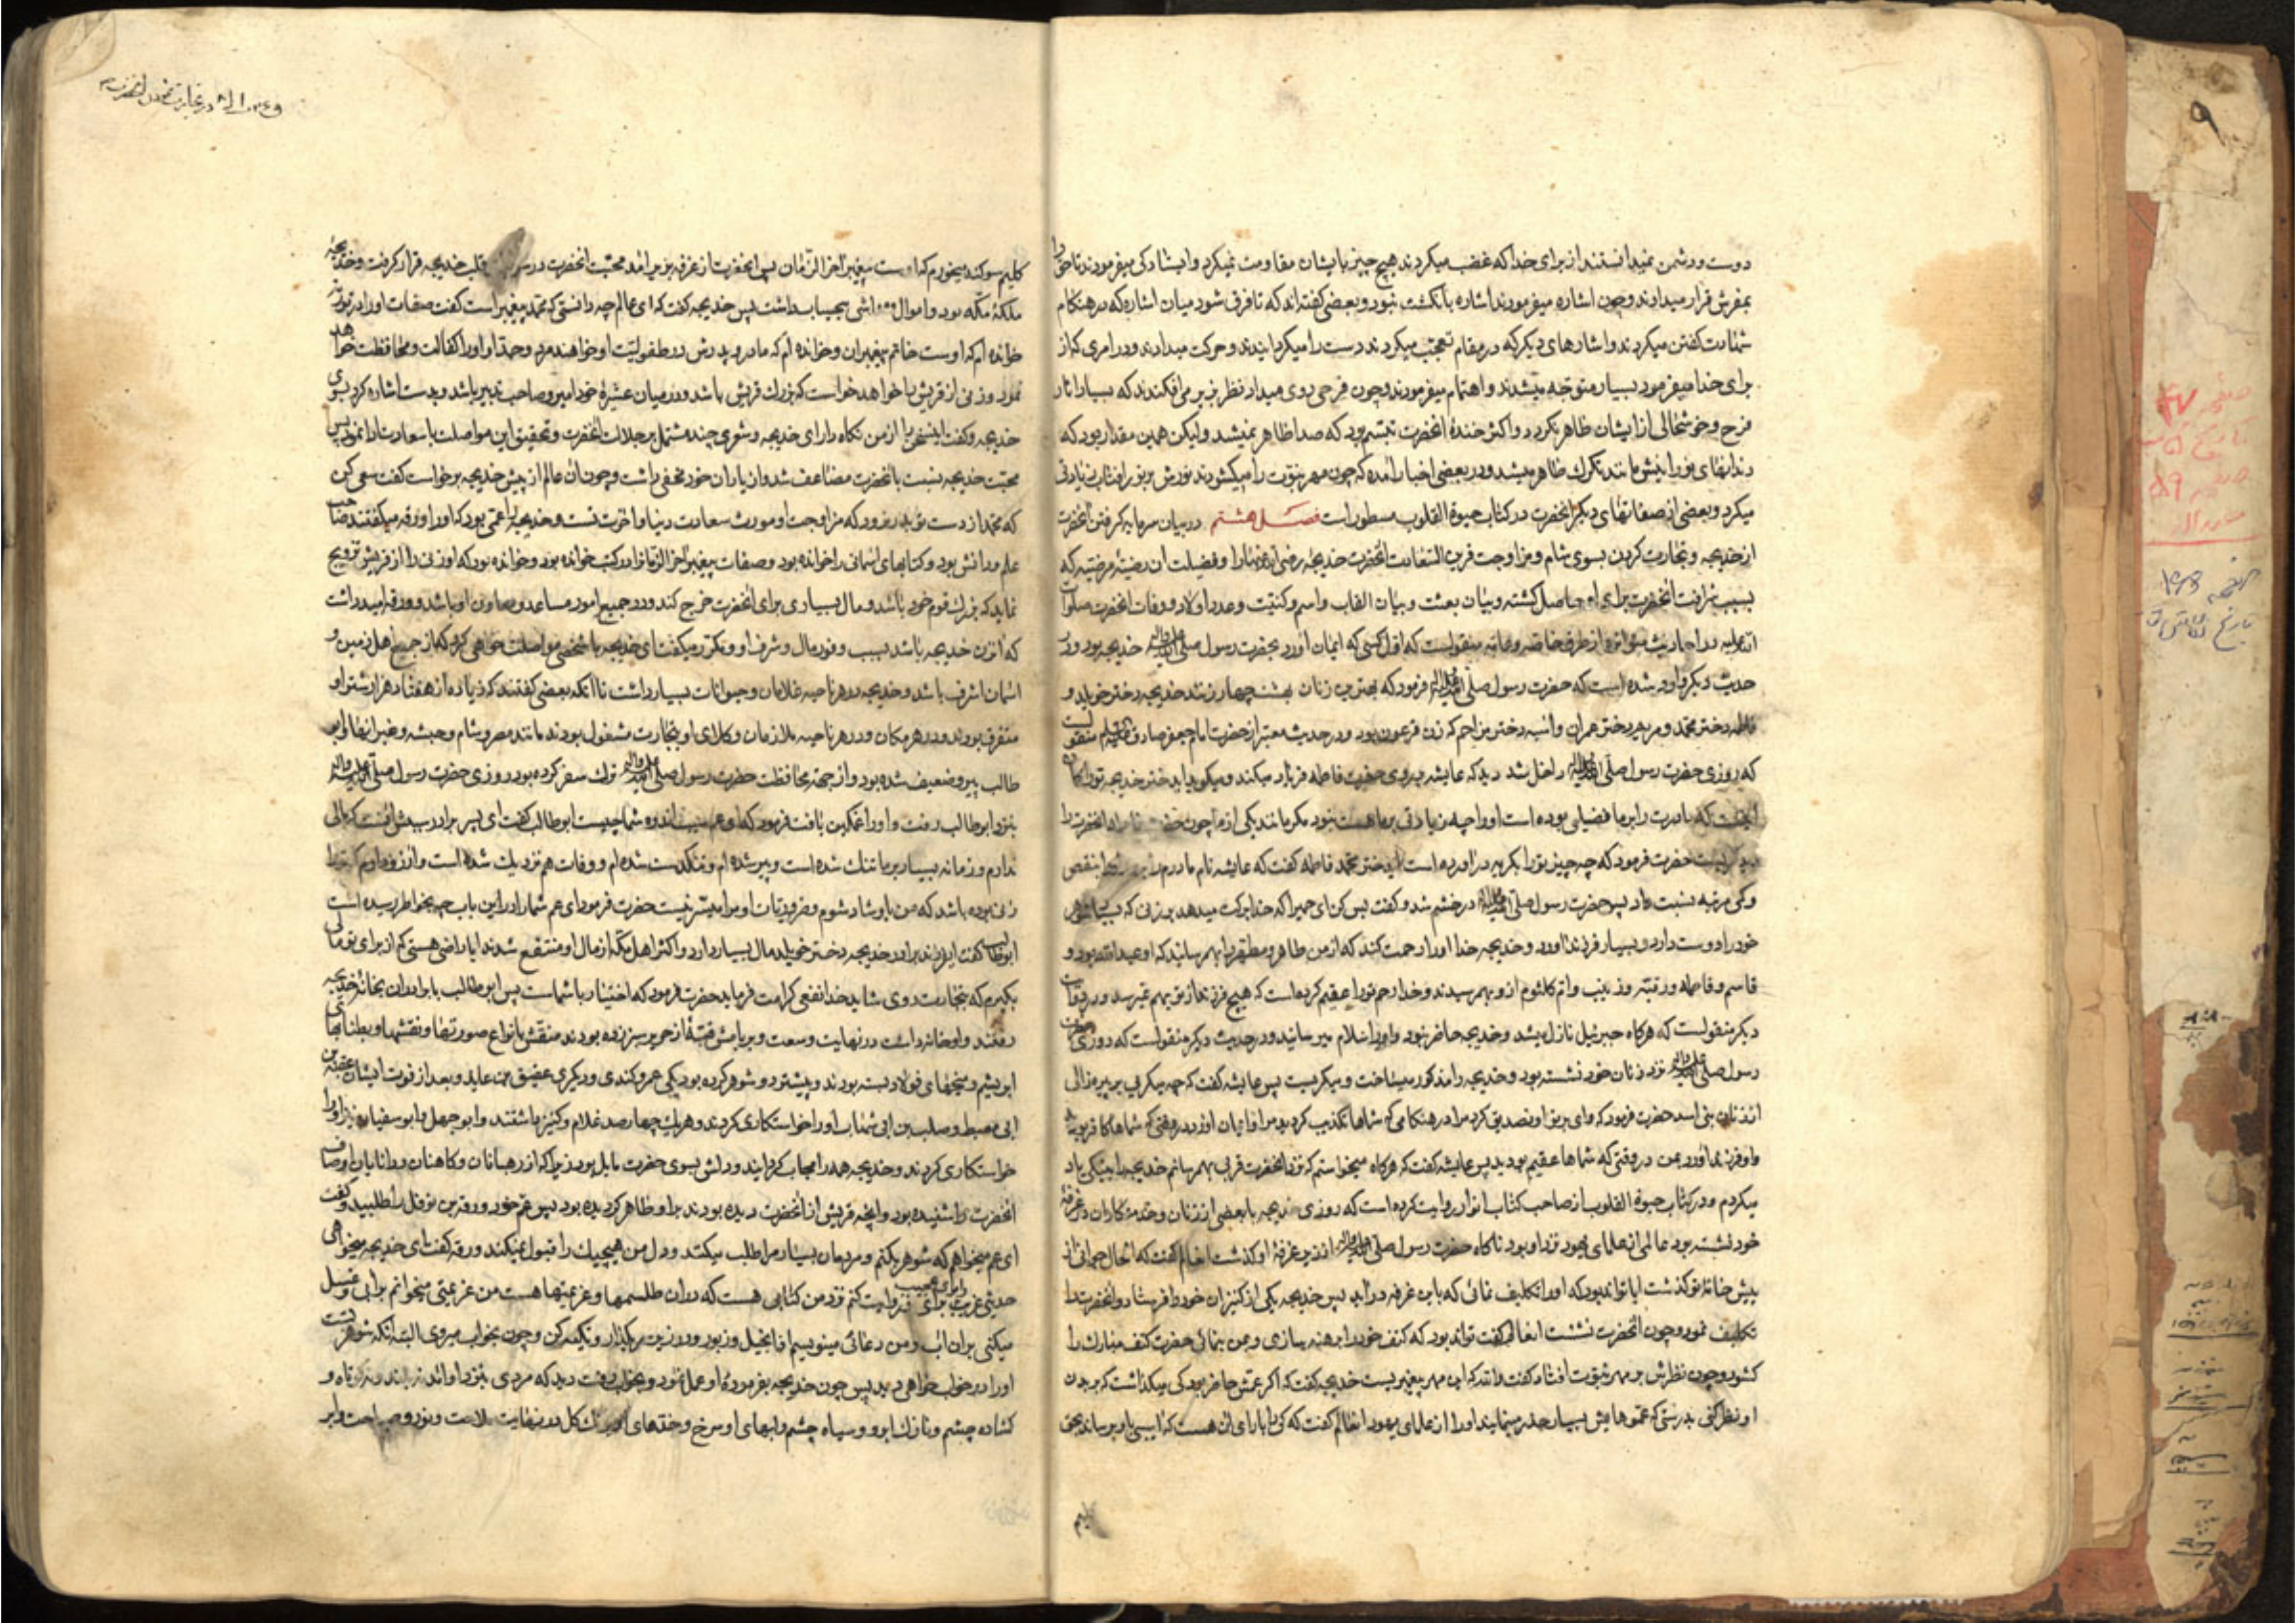 دوست و دشمن نمیدانستند از برای خدا که غضب میکردند هیچ چیز با ایشان مقاومت نمیکرد و ایستادکی میفرمودند تا حق را
بمقرش قرار میدادند و چون اشاره میفرمودند اشاره بانکشت نبود و بعضی کفته اند که تا فرقی شود میان اشاره که در هنکام
شهادت کفتن میکردند و اشارهای دیکر که در مقام تعجب میکردند دست را میکردانیدند و حرکت میدادند و در امری که از
برای خدا میفرمود بسیار متوجه میشدند و اهتمام میفرمودند و چون فرحی روی میداد نظر بزیر می افکندند که بسیار اثار
فرح و خوشحالی از ایشان ظاهر نکردد و اکثر خندهٔ انحضرت تبسم بود که صدا ظاهر نمیشد ولیکن همین مقدار بود که
دندانهای نورانیش مانند تکرک ظاهر میشد و در بعضی اخبار امده که چون مهر نبوت را میکشودند نورش بر نور افتاب زیادتی
میکرد و بعضی از صفاتهای دیکر انحضرت در کتاب حیوة القلوب مسطور است فصل هشتم در بیان سرمایه کرفتن انحضرت
از خدیجه و تجارت کردن بسوی شام و مزاوجت قرین السعادت انحضرت خدیجه رضی الله عنها را و فضیلت ان رضیهٔ مرضیه که
بسبب شرافت انحضرت برای او حاصل کشته و بیان بعثت و بیان القاب و اسم و کنیت و عدد اولاد و وفات انحضرت صلوات
الله علیه در احادیث متواتره از طرق خاصه و عامه منقولست که اول کسی که ایمان اورد بحضرت رسول صلی الله علیه واله خدیجه بود و در
حدیث دیکر وارد شده است که حضرت رسول صلی الله علیه واله فرمود که بهترین زنان بهشت چهار زنند خدیجه دختر خویلد و
فاطمه دختر محمد و مریم دختر عمران و اسیه دختر مزاحم که زن فرعون بود و در حدیث معتبر از حضرت امام جعفر صادق علیه السلام منقولست
که روزی حضرت رسول صلی الله علیه واله داخل شد دید که عایشه بروی حضرت فاطمه فریاد میکند و میکوید ای دختر خدیجه تو را کمان
اینست که مادرت را بر ما فضیلی بوده است او را چه زیادتی بر ما هست نبود مکر مانند یکی از ما چون حضرت فاطمه انحضرت را
دید کریست حضرت فرمود که چه چیز تو را بکریه در اورده است ای دختر محمد فاطمه کفت که عایشه نام مادرم را برد بنقص
و کمی مرتبه نسبت داد پس حضرت رسول صلی الله علیه واله در خشم شد و کفت بس کن ای حمیرا که خدا برکت میدهد بر زنی که بسیار شوهر
خود را دوست دارد و بسیار فرزند اورد و خدیجه خدا او را رحمت کند که از من طاهر و مطهر را بهم رسانید که او عبد الله بود و
قاسم و فاطمه و رقیه و زینب و ام کلثوم از و بهم رسیدند و خدا رحم تو را عقیم کرده است که هیچ فرزند از تو بهم نمیرسد و در روایات
دیکر منقولست که هرکاه جبرئیل نازل میشد و خدیجه حاضر نبود او را سلام میرسانید و در حدیث دیکر منقولست که روزی حضرت
رسول صلی الله علیه واله نزد زنان خود نشسته بود و خدیجه را مذکور میساخت و میکریست پس عایشه کفت که چه میکریی بر پیر زالی
از زنان بنی اسد حضرت فرمود که وای بر تو او تصدیق کرد مرا در هنکامی که شماها تکذیب کردید مرا و ایمان اورد در وقتی که شماها کافر بودید
و او فرزند اورد بمن در وقتی که شماها عقیم بودید پس عایشه کفت که هرکاه میخواستم که نزد انحضرت قربی بهم رسانم خدیجه را بنیکی یاد
میکردم و در کتاب حیوة القلوب از صاحب کتاب انوار روایت کرده است که روزی خدیجه با بعضی از زنان و خدمتکاران در غرفهٔ
خود نشسته بود عالمی از علمای یهود نزد او بود ناکاه حضرت رسول صلی الله علیه واله از زیر غرفهٔ او کذشت ان عالم کفت که الحال جوانی از
پیش خانهٔ تو کذشت ایا تواند بود که او را تکلیف نمائی که باین غرفه در اید پس خدیجه یکی از کنیزان خود را فرستاد و انحضرت را
تکلیف نمود و چون انحضرت نشست ان عالم کفت تواند بود که کتف خود را برهنه سازی و بمن بنمائی حضرت کتف مبارک را
کشود و چون نظرش بر مهر نبوت افتاد کفت والله که این مهر پیغمبریست خدیجه کفت که اکر عمش حاضر بود کی میکذاشت که بر بدن
او نظر کنی بدرستی که عموهایش بسیار حذر مینمایند او را از علمای یهود ان عالم کفت که کی را یارای ان هست که اسیبی باو برساند بحق
کلیم
وقایع در تجارت نمودن انحضرت
کلیم سوکند میخورم که اوست پیغمبر اخر الزمان پس انحضرت از غرفه بزیر امد محبت انحضرت در قلب خدیجه قرار کرفت و خدیجه
ملکهٔ مکه بود و اموال و مواشی بیحساب داشت پس خدیجه کفت که ای عالم چه دانستی که محمد پیغمبر است کفت صفات او را در توریه
خوانده ام که اوست خاتم پیغمبران و خوانده ام که مادر و پدرش در طفولیت او خواهند مرد و جد او و او را کفالت و محافظت خواهد
نمود و زنی از قریش را خواهد خواست که بزرک قریش باشد و در میان عشیرهٔ خود امیر و صاحب تدبیر باشد و بدست اشاره کرد بسوی
خدیجه و کفت اینسخن را از من نکاه دار ای خدیجه و شعری چند مشتمل بر جلالت انحضرت و تحقیق این مواصلت باسعادت ادا نمود پس
محبت خدیجه نسبت بانحضرت مضاعف شد و از یاران خود مخفی داشت و چون ان عالم از پیش خدیجه برخواست کفت سعی کن
که محمد از دست تو بدر نرود که مزاوجت او مورث سعادت دنیا و اخرت تست و خدیجه را عمی بود که او را ورقه میکفتند صاحب
علم و دانش بود و کتابهای اسمانی را خوانده بود و صفات پیغمبر اخر الزمان را در کتب خوانده بود و خوانده بود که او زنی را از قریش تزویج
نماید که بزرک قوم خود باشد و مال بسیاری برای انحضرت خرج کند و در جمیع امور مساعد و معاون او باشد و ورقه امید داشت
که ان زن خدیجه باشد بسبب وفور مال و شرف او و مکرر میکفت ای خدیجه با شخصی مواصلت خواهی کرد که از جمیع اهل زمین و
اسمان اشرف باشد و خدیجه در هر ناحیه غلامان و حیوانات بسیار داشت تا انکه بعضی کفتند که زیاده از هفتاد هزار شتر او
متفرق بودند و در هر مکان و در هر ناحیه ملازمان و وکلای او بتجارت مشغول بودند مانند مصر و شام و حبشه و غیر انها و ابو
طالب پیر و ضعیف شده بود و از جهة محافظت حضرت رسول صلی الله علیه واله ترک سفر کرده بود روزی حضرت رسول صلی الله علیه واله
بنزد ابو طالب رفت و او را غمکین یافت فرمود که ای عم سبب اندوه شما چیست ابو طالب کفت ای پسر برادر سببش انست که مالی
ندارم و زمانه بسیار بر ما تنک شده است و پیر شده ام و تنکدست شده ام و وفات هم نزدیک شده است و ارزو دارم که تو را
زنی بوده باشد که من باو شاد شوم و ضروریات او مرا میسر نیست حضرت فرمود ای عم شما را در این باب چه بخاطر رسیده است
ابو طالب کفت ای فرزند برادر خدیجه دختر خویلد مال بسیار دارد و اکثر اهل مکه از مال او منتفع شدند ایا راضی هستی که از برای تو مالی
بکیرم که بتجارت روی شاید خدا نفعی کرامت فرماید حضرت فرمود که اختیار با شماست پس ابو طالب با برادران بخانهٔ خدیجه
رفتند و او خانهٔ داشت در نهایت وسعت و بر بامش قبهٔ از حریر سبز زده بودند منقش بانواع صورتها و نقشها و بطنابهای
ابریشم و میخهای فولاد بسته بودند و پیشتر دو شوهر کرده بود یکی عمرو کندی و دیکری عتیق بن عاید و بعد از فوت ایشان عقبة بن
ابی معیط و صلب بن ابی شهاب او را خواستکاری کردند و هریک چهارصد غلام و کنیز داشتند و ابو جهل و ابو سفیان نیز او را
خواستکاری کردند و خدیجه همه را جواب کردانید و دلش بسوی حضرت مایل بود زیرا که از رهبانان و کاهنان و دانایان اوصاف
انحضرت را شنیده بود و انچه قریش از انحضرت دیده بودند بر او ظاهر کردیده بود پس عم خود ورقه بن نوفل را طلبید و کفت
ای عم میخواهم که شوهر بکنم و مردمان بسیار مرا طلب میکنند و دل من هیچیک را قبول نمیکند ورقه کفت ای خدیجه میخواهی
حدیثی غریب برای تو روایت کنم نزد من کتابی هست که در ان طلسمها و عزیمتها هست من عزیمتی میخوانم بر ابی و غسل
میکنی بر ان اب و من دعائی مینویسم از انجیل و زبور و در زیر سر بکذار و تکیه کن و چون بخواب میروی البته انکه شوهر تست
او را در خواب خواهی دید پس چون خدیجه بفرمودهٔ او عمل نمود و بخواب رفت دید که مردی بنزد او امد نه بلند و نه کوتاه و
کشاده چشم و نازک ابرو و سیاه چشم و لبهای او سرخ و خدهای او برنک کل در نهایت ملاحت و نور و صباحت و ابر